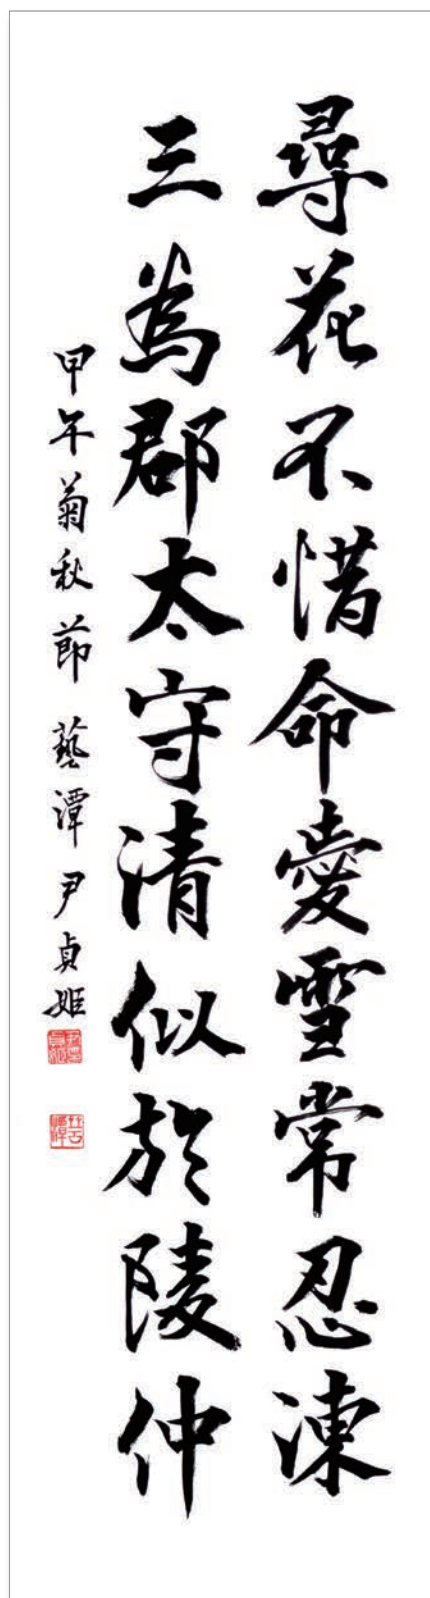 尋花不惜命愛雪常忍凍
三為郡太守清似於陵仲
甲午菊秋節藝潭尹貞姬